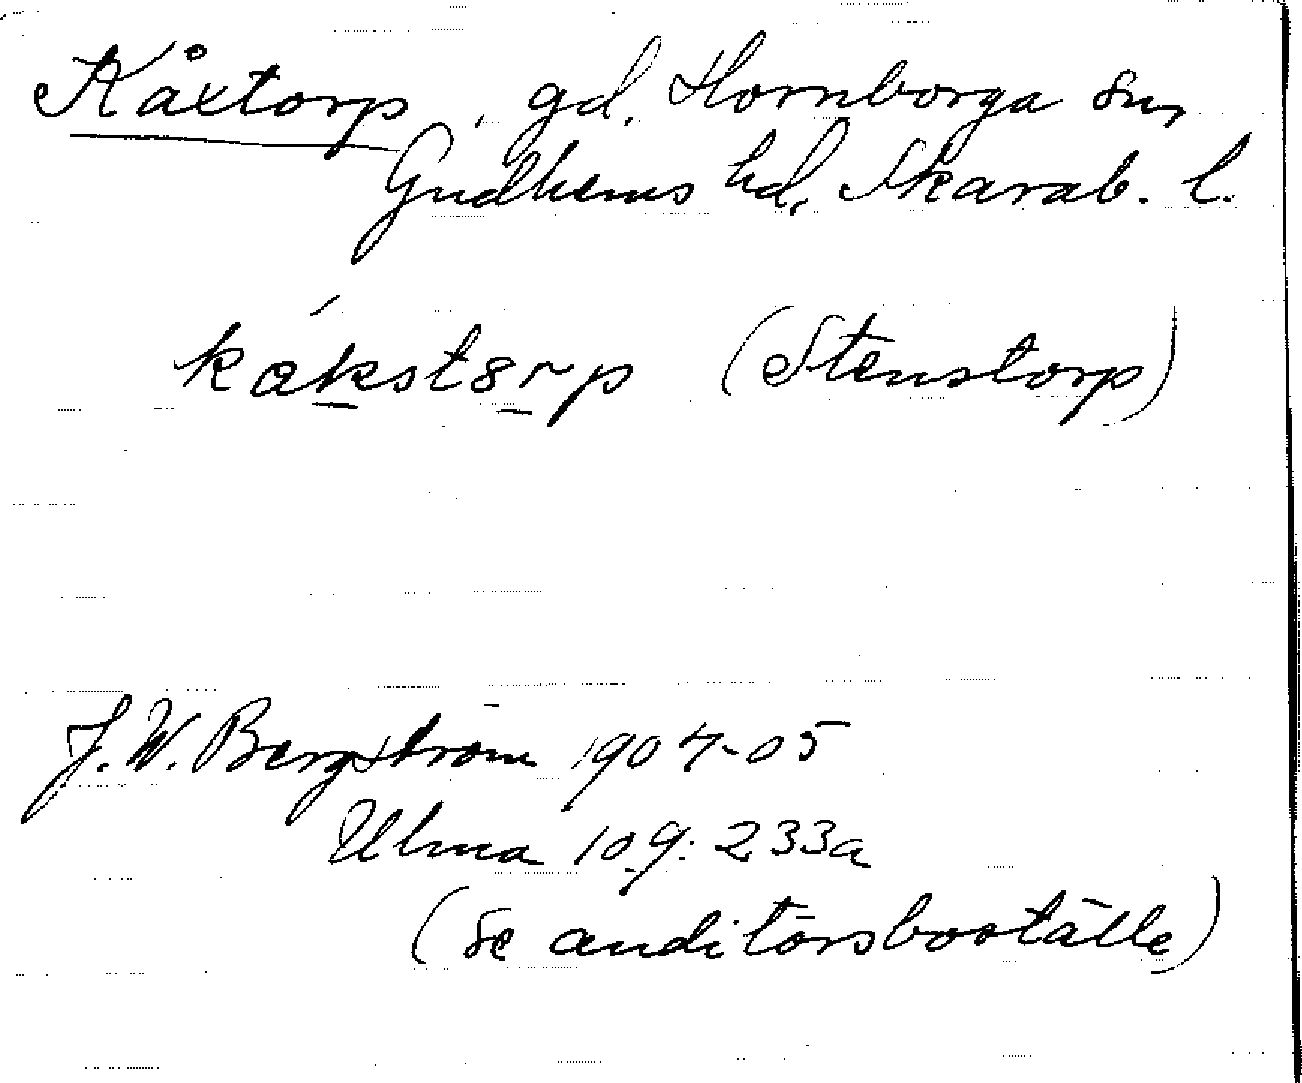 Kåxtorp, gd, Hornborga sn,
Gudhems hd, Skarab. l.
kákst8rp (Stenstorp)
J. W. Bergström 1904-05
Ulma 109: 233a
(se auditörsboställe)